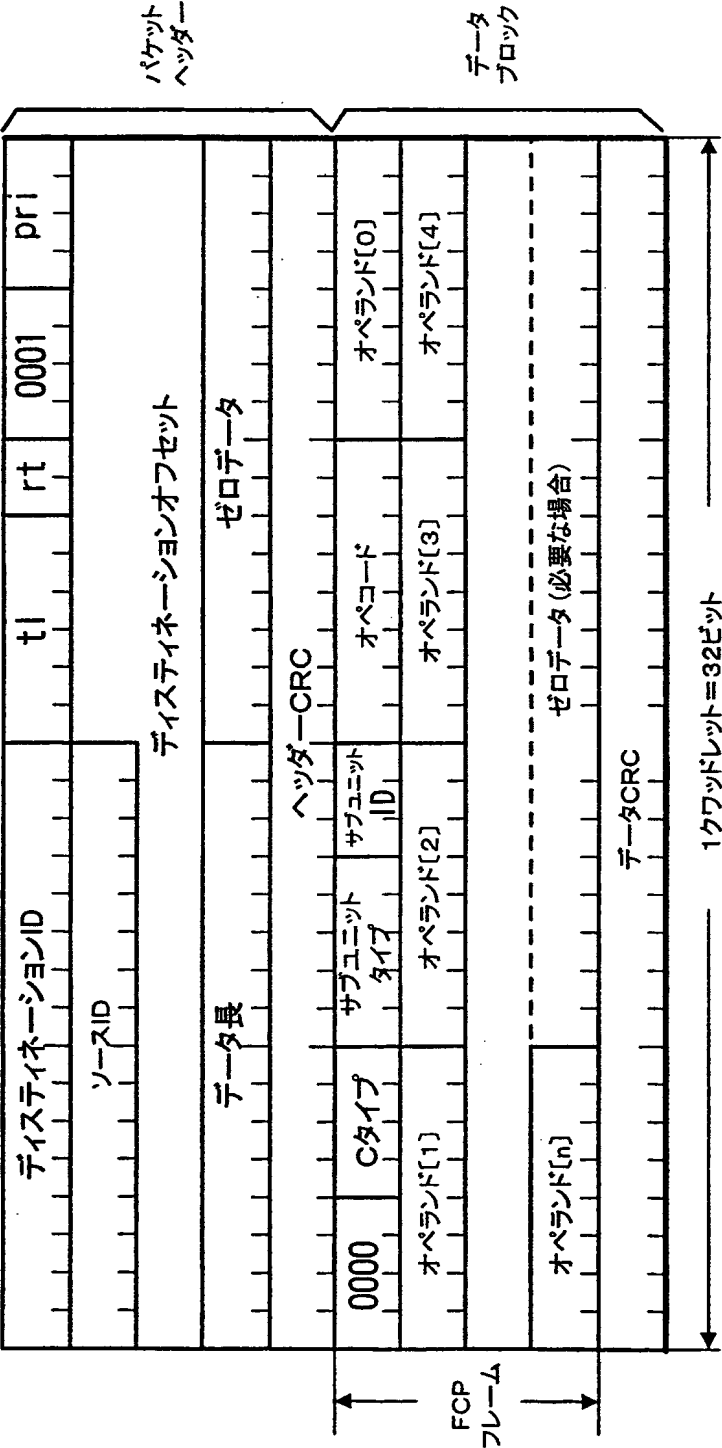 パケット
ヘッダー
データ
ブロック
ディスティネーションID
tl
rt
0001
pri
ソースID
ディスティネーションオフセット
データ長
ゼロデータ
ヘッダーCRC
0000
Cタイプ
サブユニット
タイプ
サブユニット
ID
オペコード
オペランド[0]
オペランド[1]
オペランド[2]
オペランド[3]
オペランド[4]
オペランド[n]
ゼロデータ(必要な場合)
データCRC
FCP
フレーム
1クワッドレット=32ビット